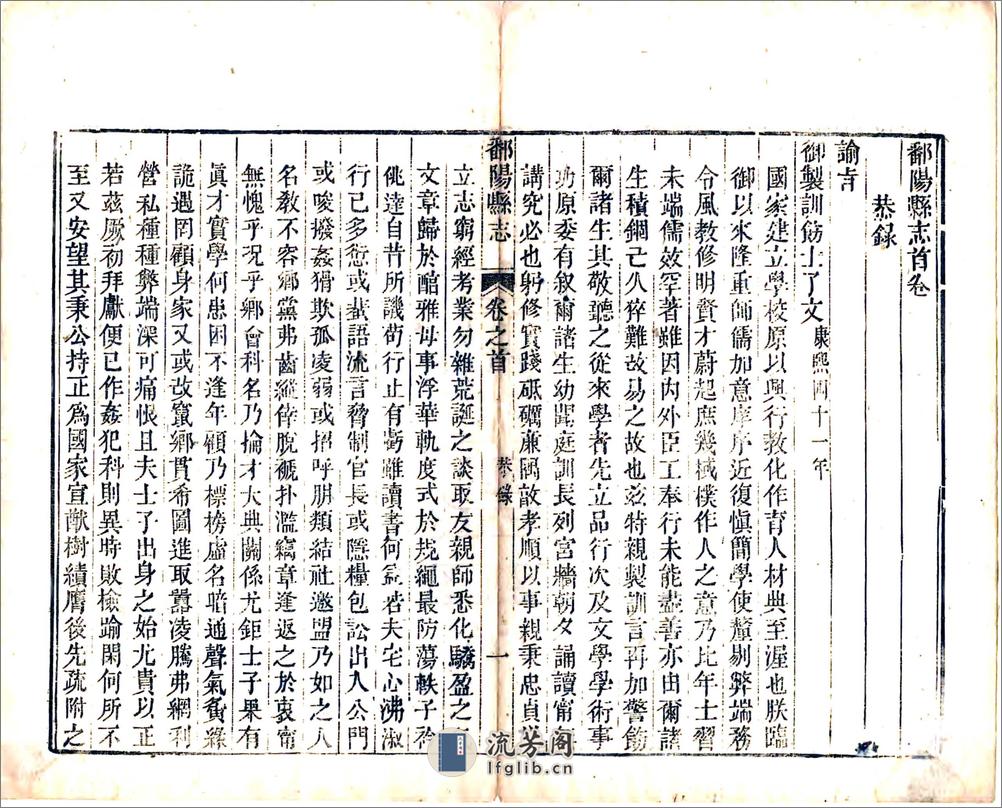 鄱陽縣志首卷
恭錄
諭旨
御製訓飭士子文康熙四十一年
國家建立學校原以興行教化作育人材典至渥也朕臨
御以來隆重師儒加意庠序近復慎簡學使釐剔弊端務
令風教修明賢才蔚起庶幾棫樸作人之意乃比年士習
未端儒效罕著雖因內外臣工奉行未能盡善亦由爾諸
生積錮已久猝難改易之故也茲特親製訓言再加警飭
爾諸生其敬聽之從來學者先立品行次及文學學術事
功原委有敘爾諸生幼聞庭訓長列宮牆朝夕誦讀甯
講究必也躬修實踐砥礪廉隅敦孝順以事親秉忠貞
鄱陽縣志
卷之首
恭錄
一
立志窮經考業勿雜荒誕之談取友親師悉化驕盈之
文章歸於醇雅毋事浮華軌度式於規繩最防蕩軼子衿
佻達自昔所譏苟行止有虧雖讀書何益若夫宅心弗淑
行己多愆或蜚語流言脅制官長或隱糧包訟出入公門
或唆撥姦猾欺孤凌弱或招呼朋類結社邀盟乃如之人
名教不容鄉黨弗齒縱倖脫褫扑濫竊章逢返之於衷甯
無愧乎況乎鄉會科名乃掄才大典關係尤鉅士子果有
真才實學何患困不逢年顧乃標榜虛名暗通聲氣夤緣
詭遇罔顧身家又或改竄鄉貫希圖進取囂凌騰弗網利
營私種種弊端深可痛恨且夫士子出身之始尤貴以正
若茲厥初拜獻便已作姦犯科則異時敗檢踰閑何所不
至又安望其秉公持正為國家宣猷樹績膺後先疏附之
流芳閣
lfglib.cn